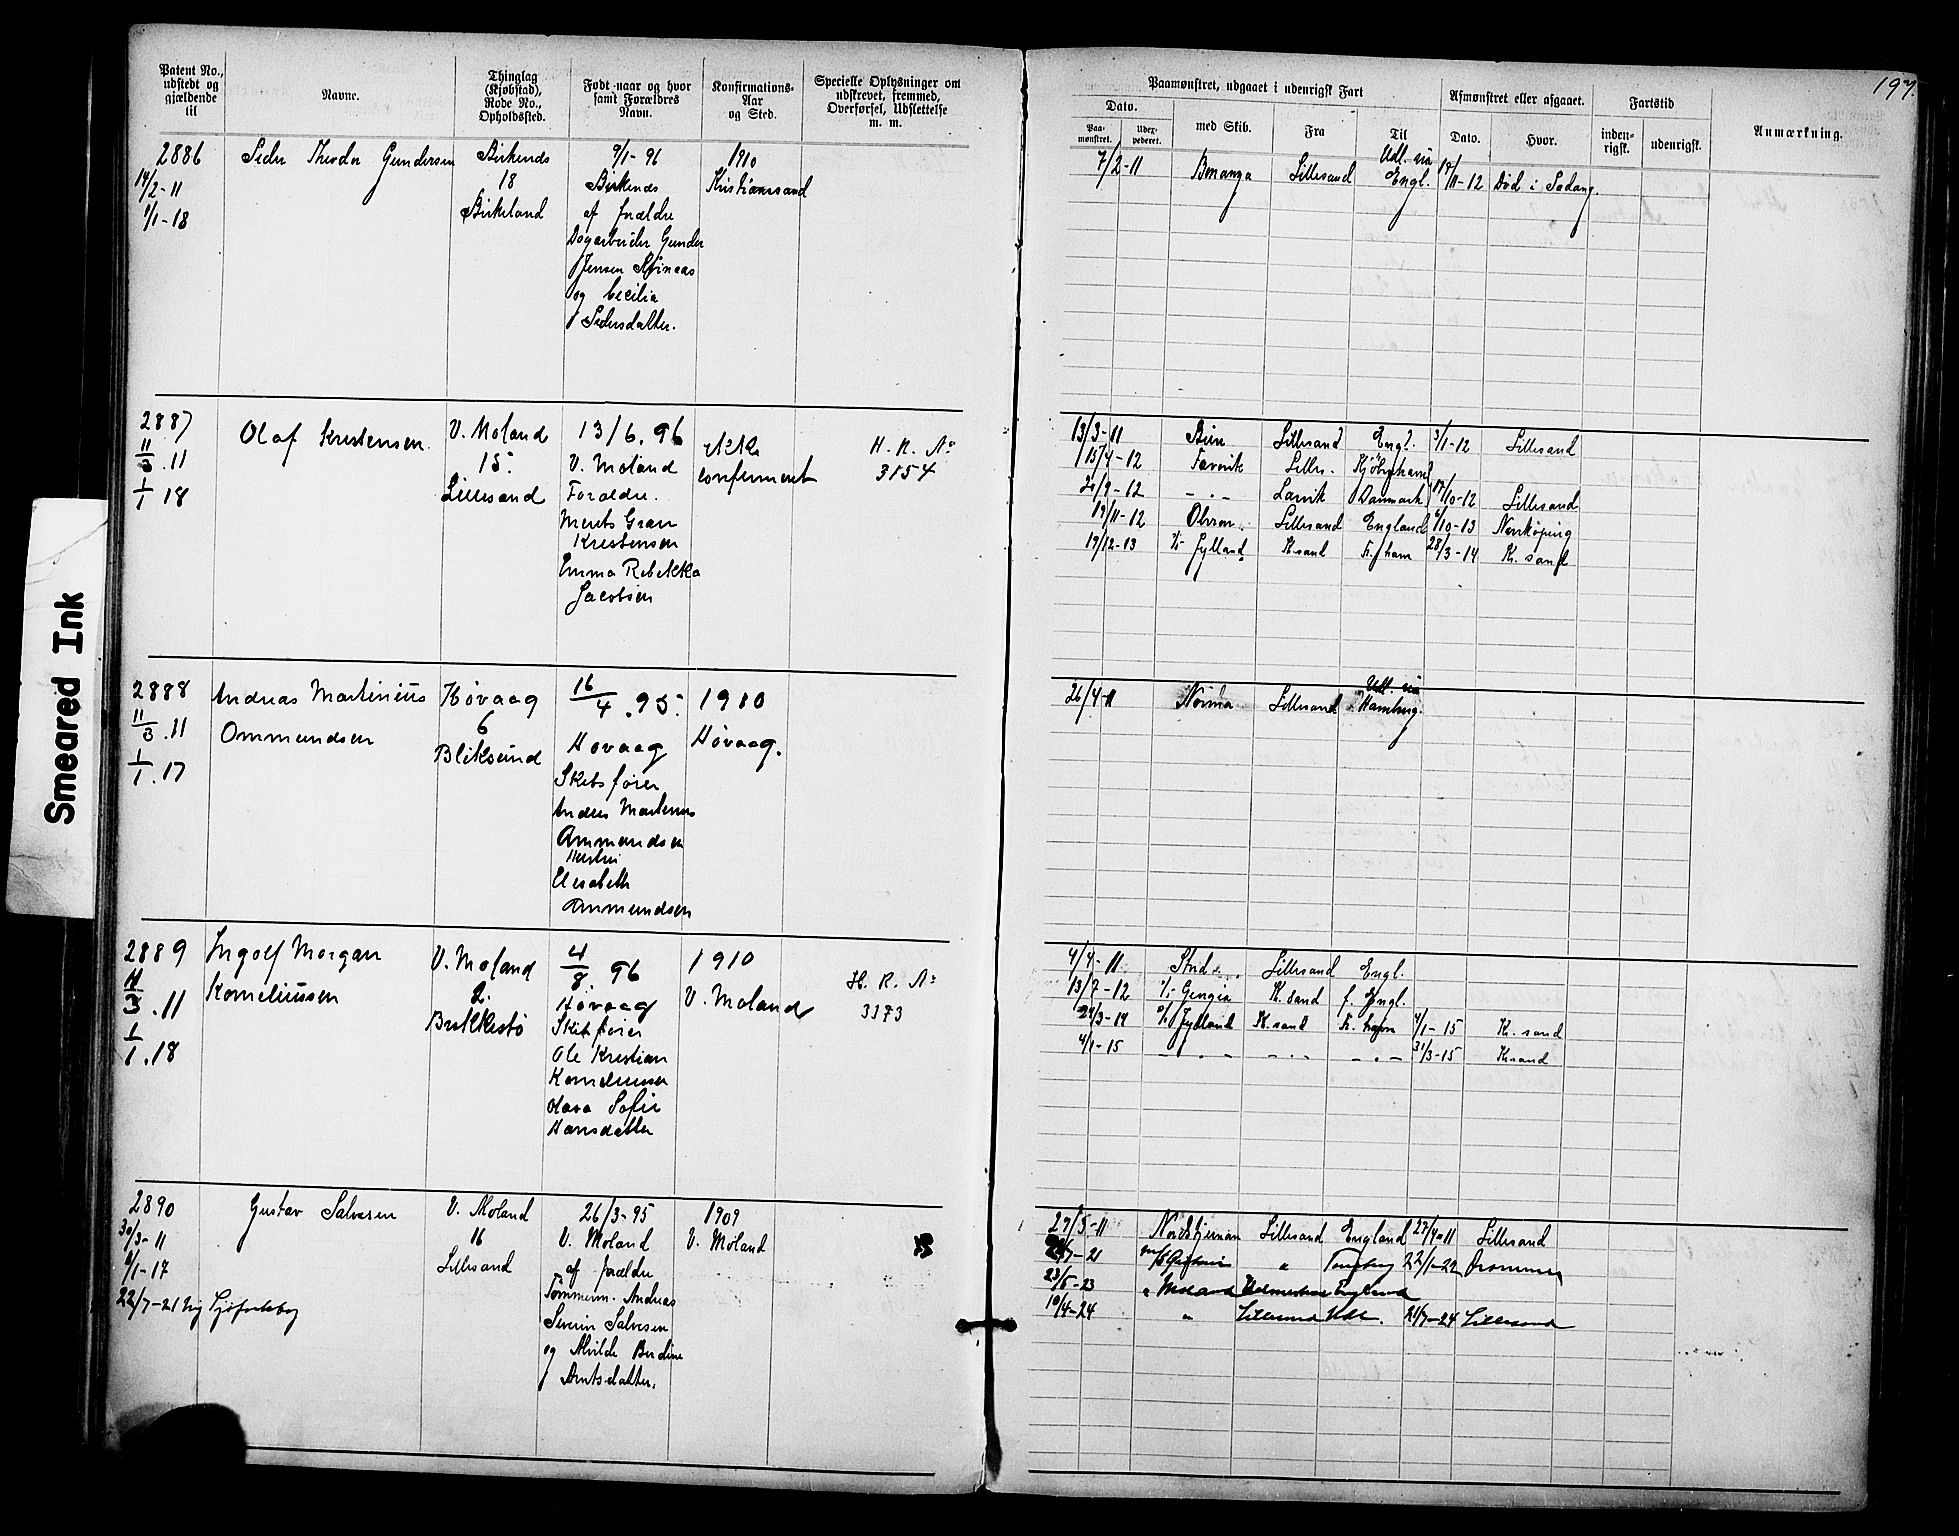 197.
Patent No., udstedt og gjældende til
Navne.
Thinglag (Kjøbstad), Rode No., Opholdssted.
Født naar og hvor samt Forældres Navn.
Konfirmations-Aar og Sted.
Specielle Oplysninger om udskrevet, fremmed, Overførsel, Udslettelse m. m.
Paamønstret, udgaaet i udenrigsk Fart
Dato.
Paa-mønstret.
Udex-pederet.
med Skib.
Fra
Til
Afmønstret eller afgaaet.
Dato.
Hvor.
Fartstid
inden-rigsk.
udenrigsk.
Anmærkning.
2886
14/2-11
1/1-18
Peder Theodor Gundersen
Birkenes
18
Birkeland
9/1-96
Birkenes
af forældre
Dagarbeider Gunder
Jensen
og Cecilia
Pedersdatter.
1910
Kristianssand
7/2-11 Bonanza Lillesand Udl. via Engl. 14/11-12 Død i
2887
11/3.11
1/1 18
Olaf Kristensen.
V. Moland
15.
Lillesand
13/6.96
V. Moland
Forældre.
Kristensen
Emma Rebekka
Jacobsen
ikke
confirmeret
H. R. No
3154
13/3-11 Lillesand Engl. 3/1-12 Lillesand
15/4-12 Favorit Lilles. Kjøbenhavn
20/9-12 - . - Larvik Danmark 17/10-12 Lillesand
19/11-12 Lillesand England 6/10-13 Norrköping
19/12-13 Jylland K.sand Fr.havn 28/3-14 Kr. sand
2888
11/3.11
1/1.17
Andreas Martinius
Ommundsen
Høvaag
6
Bliksund
16/4.95.
Høvaag
Skibsfører
Andreas Martinius
Ommundsen
Hustru
Elisabeth
Ommundsen
1910
Høvaag.
26/4-11 Norma Lillesand Udl. via Hamburg.
2889
11/3.11
1/1.18
Ingolf Morgan
Korneliussen
V. Moland
2.
Brekkestø
4/8 96
Høvaag
Skibsfører
Ole Kristian
Korneliussen
Sofie
Hansdatter
1910
V. Moland
H. R. No
3173
4/4-11 Lillesand Engl.
13/7-12 K.sand f. Engl.
24/3-14 Jylland K.sand Fr. havn 4/1-15 Kr. sand
4/1-15 - . - - . - - . - 31/3-15 Krsand
2890
30/3-11
1/1-17
22/7-21 Ny Sjøfartsbog
Gustav Salvesen
V. Moland
16
Lillesand
26/3-95
V. Moland
af forældre
Tømmerm. Andreas
Severin Salvesen
og Alvilde Berdine
Arntsdatter.
1909
V. Moland
29/5-11 Nordstjernen Lillesand England 27/9-11 Lillesand
" 22/1-22 Drammen
23/5-23 England
10/4-24 " Lillesand Udl. 21/7-24 Lillesand
Smeared Ink